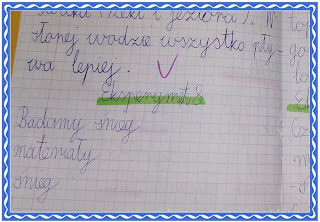 (rzeki i jeziora). W
słonej wodzie wszystko pły-
wa lepiej.
Eksperyment 8
Badamy śnieg
materiały
śnieg